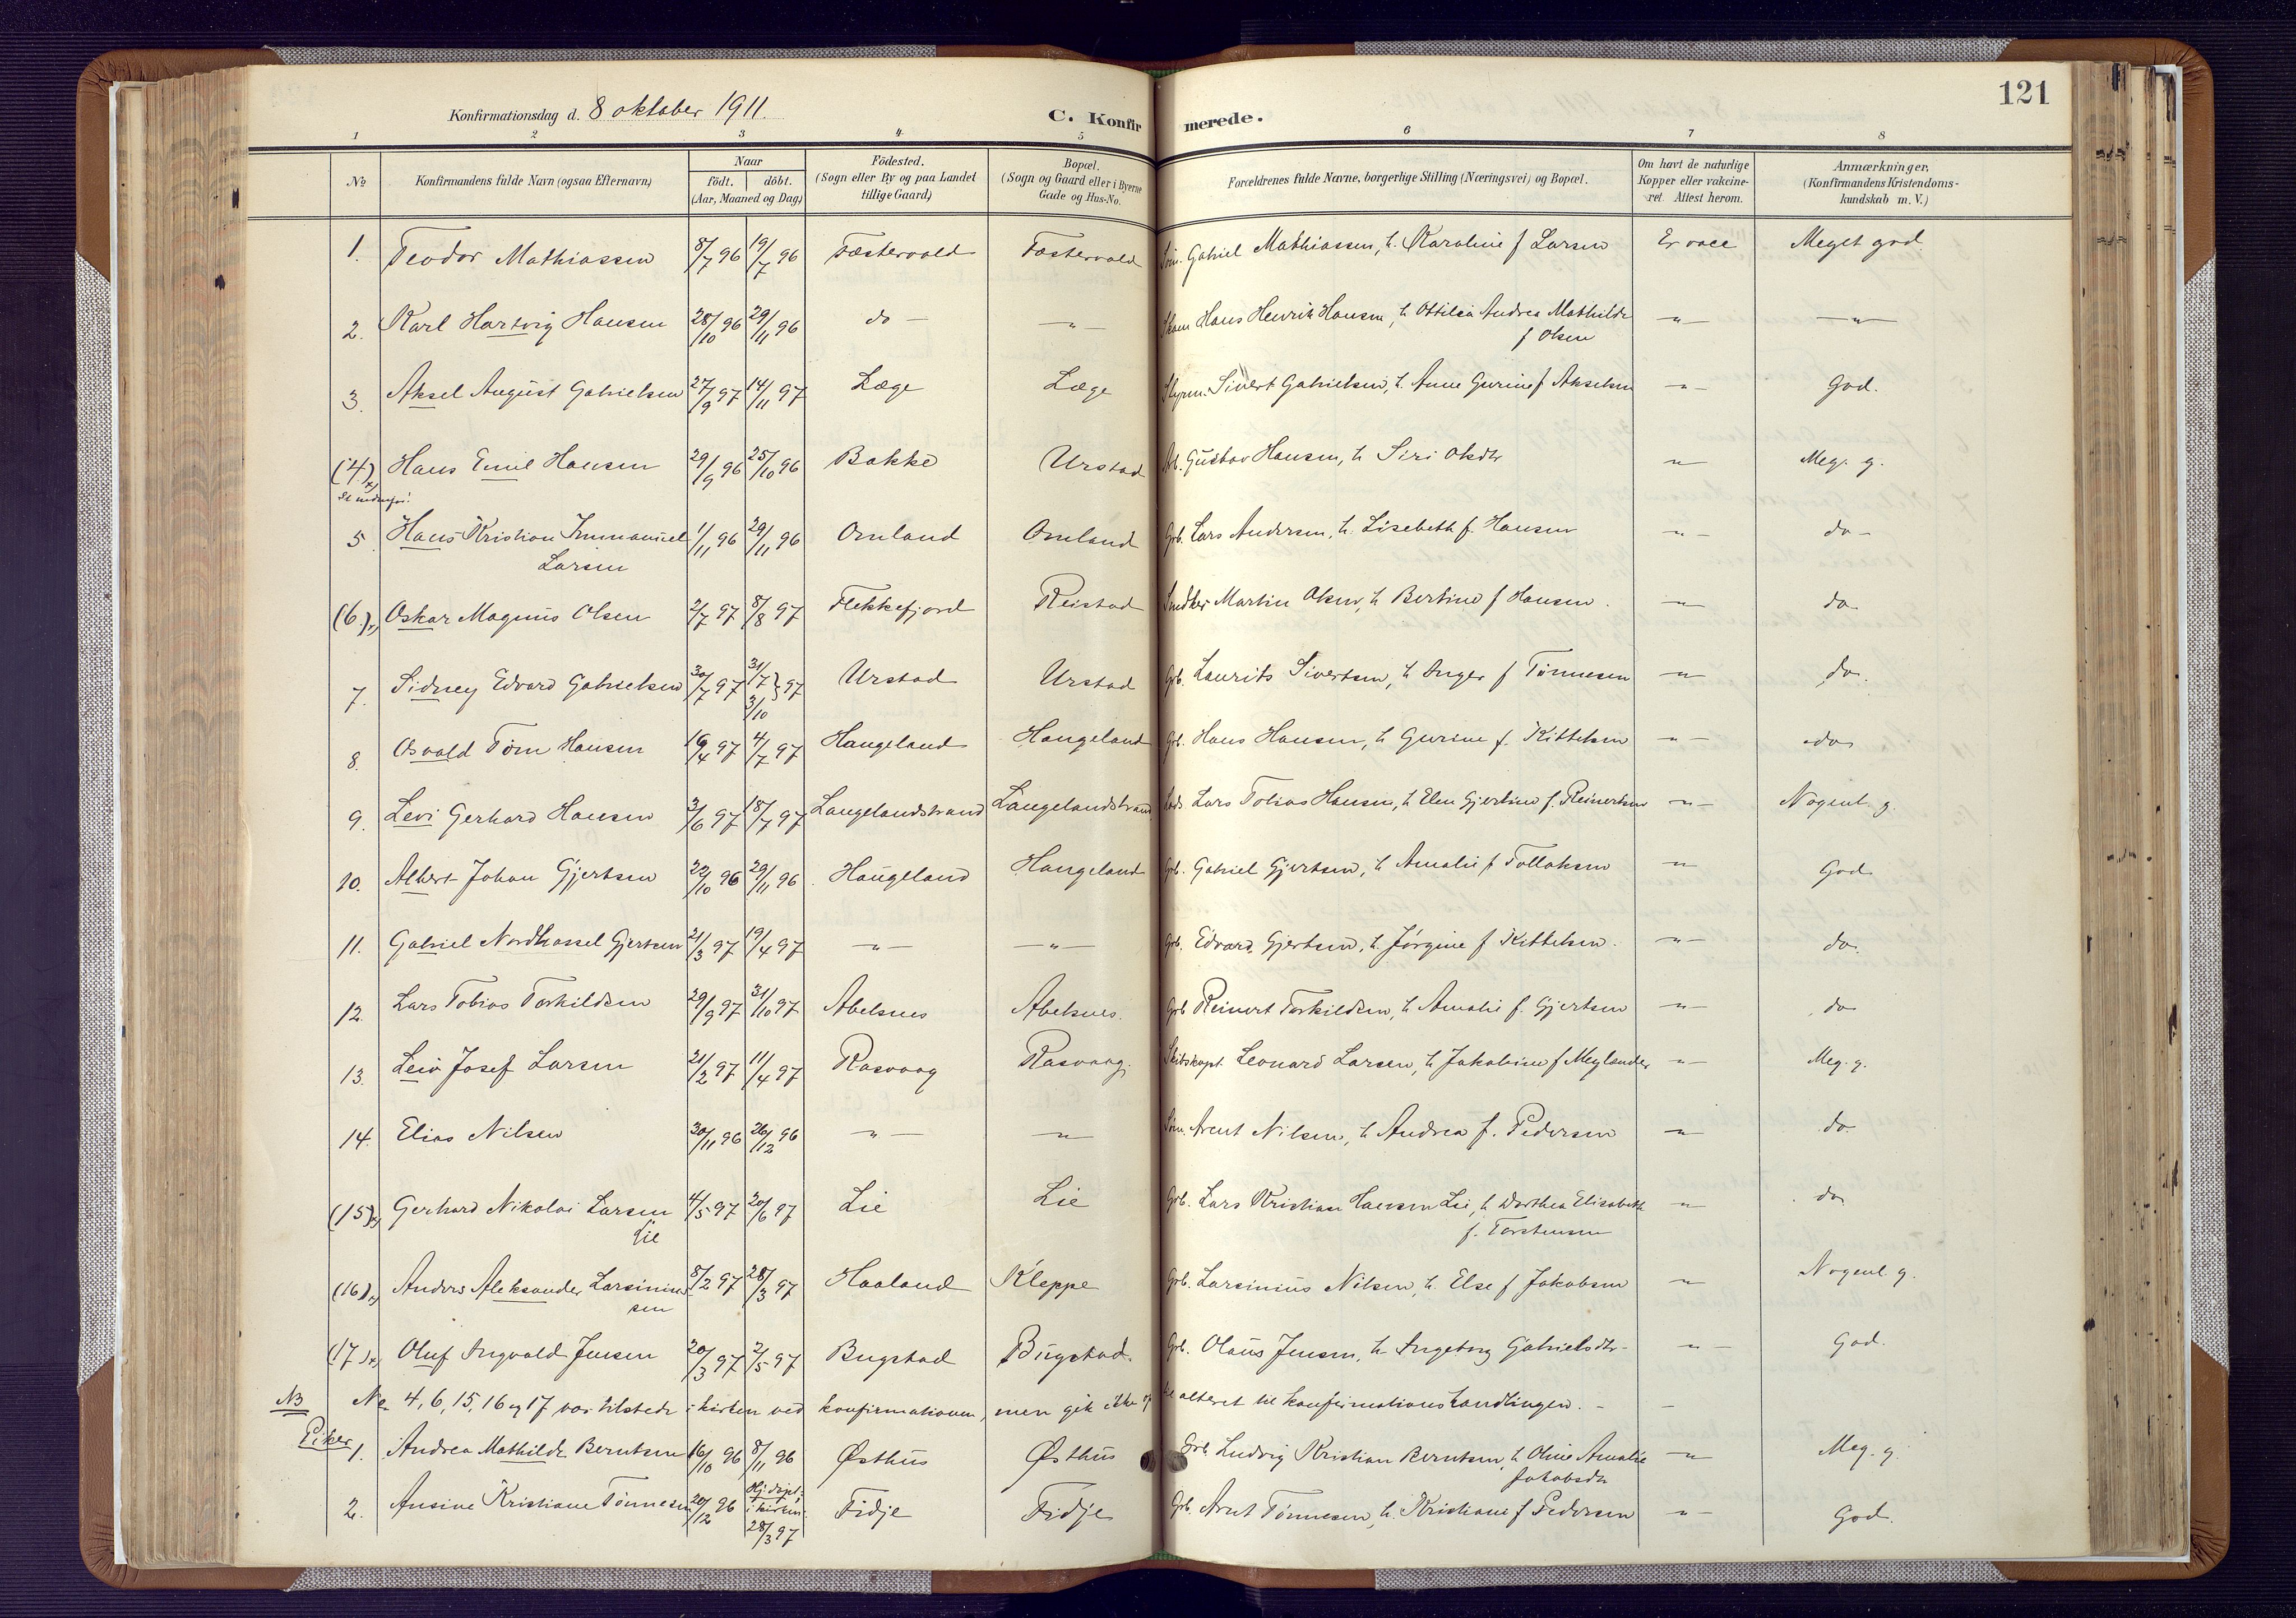 121
Konfirmationsdag d. 8 oktober 1911.
C. Konfirmerede.
1 2 3 4 5 6 7 8
No Konfirmandens fulde Navn (ogsaa Efternavn)
Naar
født. døbt.
(Aar, Maaned og Dag)
Födested.
(Sogn eller By og paa Landet
tillige Gaard)
Bopæl.
(Sogn og Gaard eller i Byerne
Gade og Hus-No.
Forældrenes fulde Navne, borgerlige Stilling (Næringsvei) og Bopæl.
Om havt de naturlige
Kopper eller vakcine-
ret. Attest herom.
Anmærkninger,
(Konfirmandens Kristendoms-
kundskab m. V.)
1. Teodor Mathiassen 8/7 96 19/7 96 Fæstervold Fæstervold Søm. Gabriel Mathiassen, h. Karoline f Larsen Er vacc Meget god
2. Karl Hartvig Hansen 28/10 96 29/11 96 do — — " — Hans Henrik Hansen, h Ottilia Andrea Mathilde — " — — " —
f Olsen
3. Aksel August Gabrielsen 27/9 97 14/11 97 Læge Læge Styrm. Sivert Gabrielsen, h. Anne Gurine f Akselsen — " — God.
(4.)x) Hans Emil Hansen 29/9 96 25/10 96 Bakke Urstad Arb. Gustav Hansen, h Siri Olsdtr — " — Meg. g.
Se nedenfor!
5. Hans Kristian Immanuel 1/11 96 29/11 96 Omland Omland Grb. Lars Andersen, h. Lisebeth f. Hansen — " — do —
Larsen
(6.)x) Oskar Magnus Olsen 2/7 97 8/8 97 Flekkefjord Reistad Snedker Martin Olsen, h Bertine f Hansen. — " — do
7. Sidney Edvard Gabrielsen 30/7 97 31/7 } 97 Urstad Urstad Grb. Laurits Sivertsen, h Inger f Tønnesen — " — do.
3/10
8. Osvald Tøm Hansen 16/4 97 4/7 97 Haugeland Haugeland Grb. Hans Hansen, h Gurine f. Kittelsen — " — do
9. Levi Gerhard Hansen 3/6 97 18/7 97 Langelandstrand Langelandstrand Lods Lars Tobias Hansen, h Elen Gjertine f. Reinertsen — " — Nogenl. g.
10. Albert Johan Gjertsen 22/10 96 29/11 96 Haugeland Haugeland Grb. Gabriel Gjertsen, h Amalie f Tollaksen — " — God
11. Gabriel Nordhassel Gjertsen 21/3 97 19/4 97 — " — — " — Grb. Edvard Gjertsen, h. Jørgine f Kittelsen. — " — do.
12. Lars Tobias Torkildsen 29/9 97 31/10 97 Abelsnes Abelsnes. Grb Reinert Torkildsen, h Amalie f. Gjertsen — " — do
13. Leiv Josef Larsen 21/2 97 11/4 97 Rasvaag Rasvaag. Skibskapt. Leonard Larsen, h Jakobine f Meylander — " — Meg. g.
14. Elias Nilsen 30/11 96 26/12 96 — " — — " — Søm. Arent Nilsen, h Andrea f. Pedersen — " — do
(15)x) Gerhard Nikolai Larsen 4/5 97 20/6 97 Lie Lie Grb. Lars Kristian Hansen Lie, h Dorthea Elisabeth — " — do
Lie f. Torstensen
(16)x) Anders Aleksander Larsinius 8/2 97 28/3 97 Haaland Kleppe Grb. Larsinius Nilsen, h. Else f Jakobsen — " — Nogenl. g.
sen
(17)x) Oluf Ingvald Jensen 20/3 97 2/5 97 Bugstad Bugstad. Grb. Olaus Jensen, h Ingeborg Gabrielsdtr — " — God.
NB No 4, 6, 15, 16 og 17 var tilstede i kirken ved konfirmationen, men gik ikke op til alteret til konfirmationshandlingen.
Piker
1. Andrea Mathilde Berntsen 16/10 96 8/11 96 Østhus Østhus Grb. Ludvig Kristian Berntsen, h Oline Amalie — " — Meg. g.
Jakobsdtr
2. Ansine Kristiane Tønnesen 20/12 96 Hj. døpt; Fidje Fidje Grb. Arnt Tønnesen, h. Kristiane f Pedersen — " — God.
i kirken
28/3 97